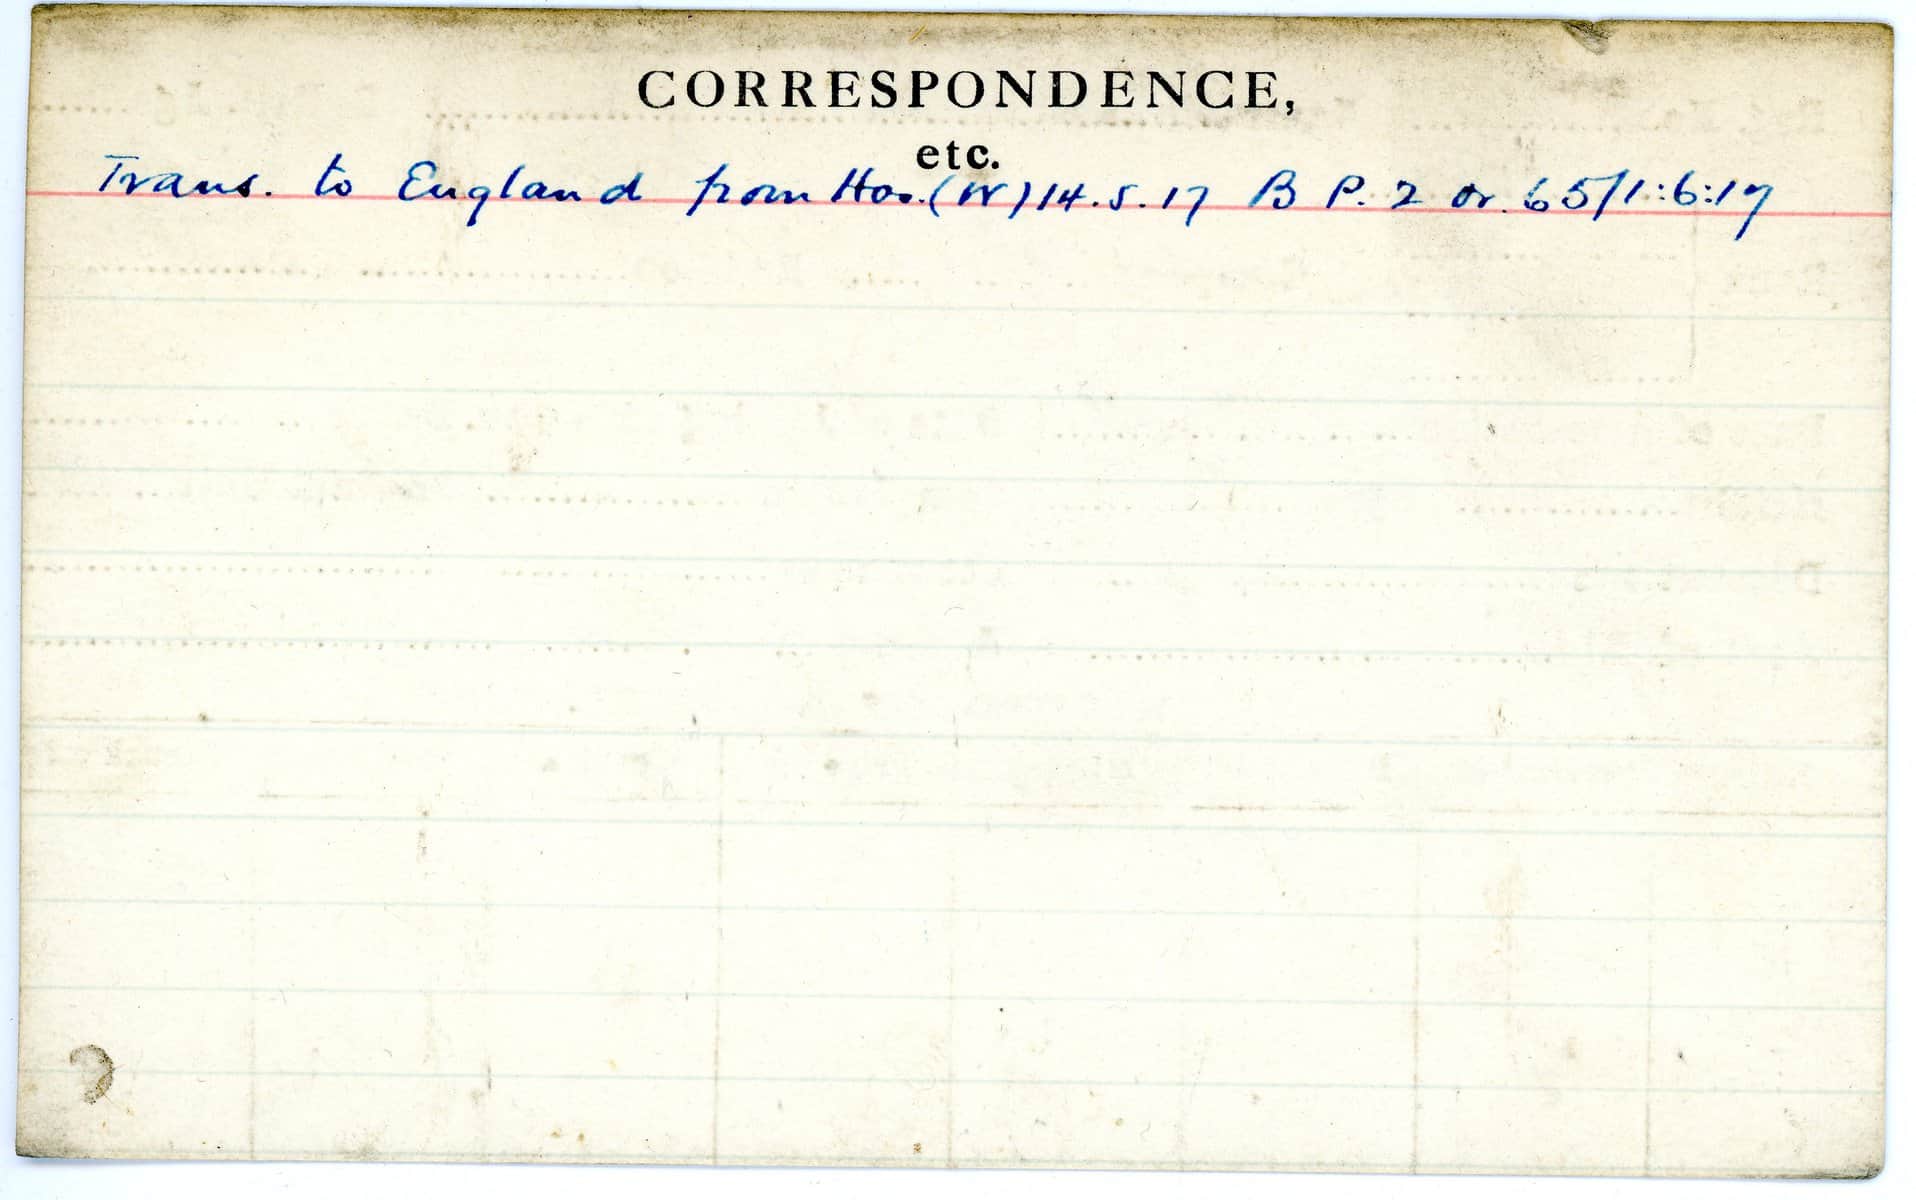 CORRESPONDENCE,
etc.
Trans. to England from Hos. (W) 14.5.17 B P. 2 Or. 65/1:6:17